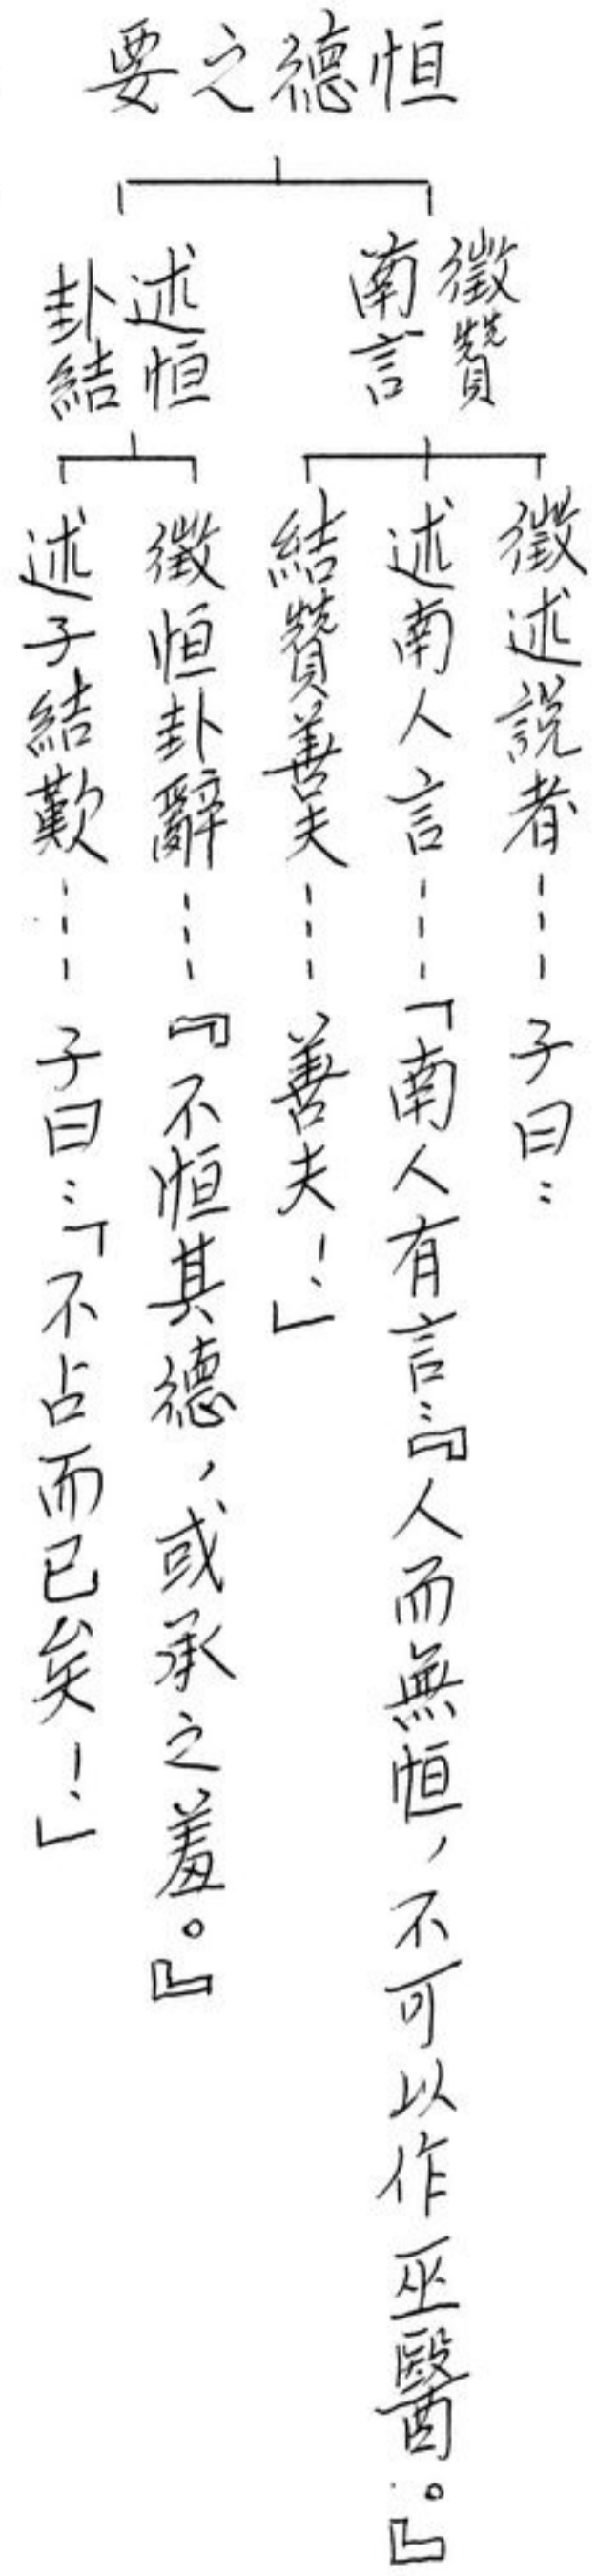 恒德之要
徵贊
南言
徵述說者┅子曰：
述南人言┅「南人有言：『人而無恒，不可以作巫醫。』
結贊善夫┅善夫！」
述恒
卦結
徵恒卦辭┅『不恒其德，或承之羞。』
述子結歎┅子曰：「不占而已矣！」